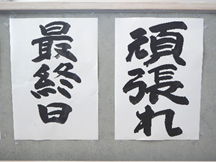 頑張れ
最終日